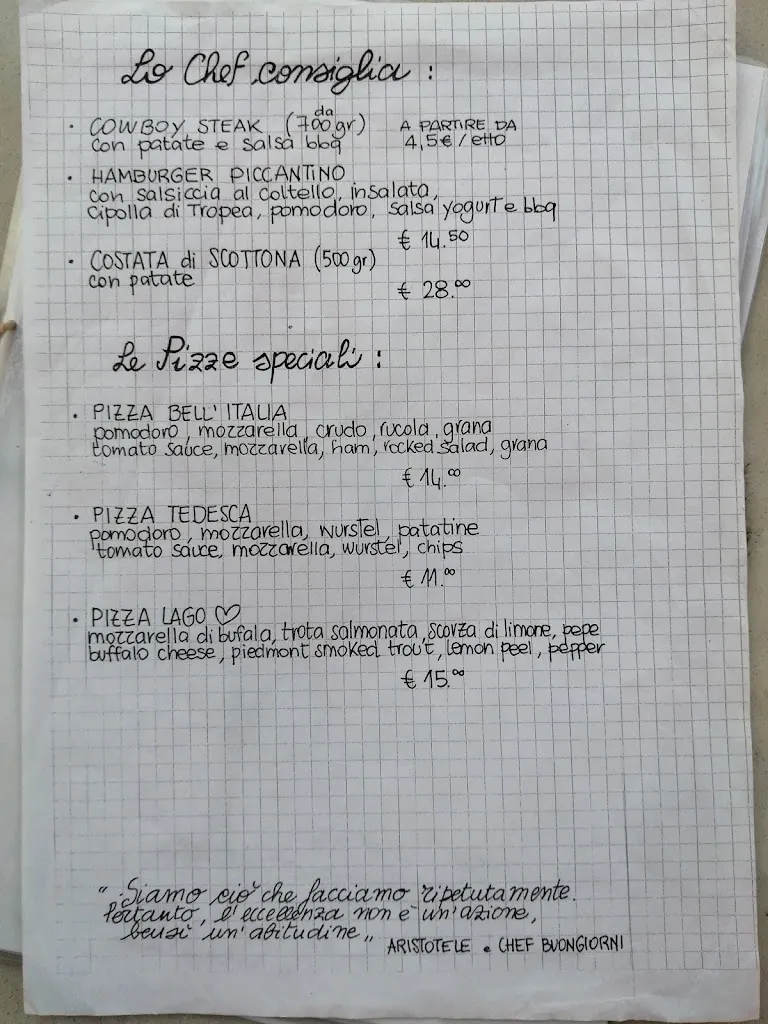 Lo Chef consiglia :
· COWBOY STEAK (da 700 gr) A PARTIRE DA
con patate e salsa bbq 4,5€/etto
· HAMBURGER PICCANTINO
con salsiccia al coltello, insalata,
cipolla di Tropea, pomodoro, salsa yogurt e bbq
€ 14.50
· COSTATA di SCOTTONA (500 gr)
con patate
€ 28.00
Le Pizze speciali :
· PIZZA BELL'ITALIA
pomodoro, mozzarella, crudo, rucola, grana
tomato sauce, mozzarella, ham, rocked salad, grana
€ 14.00
· PIZZA TEDESCA
pomodoro, mozzarella, wurstel, patatine
tomato sauce, mozzarella, wurstel, chips
€ 11.00
· PIZZA LAGO ♡
mozzarella di bufala, trota salmonata, scorza di limone, pepe
buffalo cheese, piedmont smoked trout, lemon peel, pepper
€ 15.00
"Siamo ciò che facciamo ripetutamente.
Pertanto, l'eccellenza non è un'azione,
bensì un'abitudine„ ARISTOTELE e CHEF BUONGIORNI